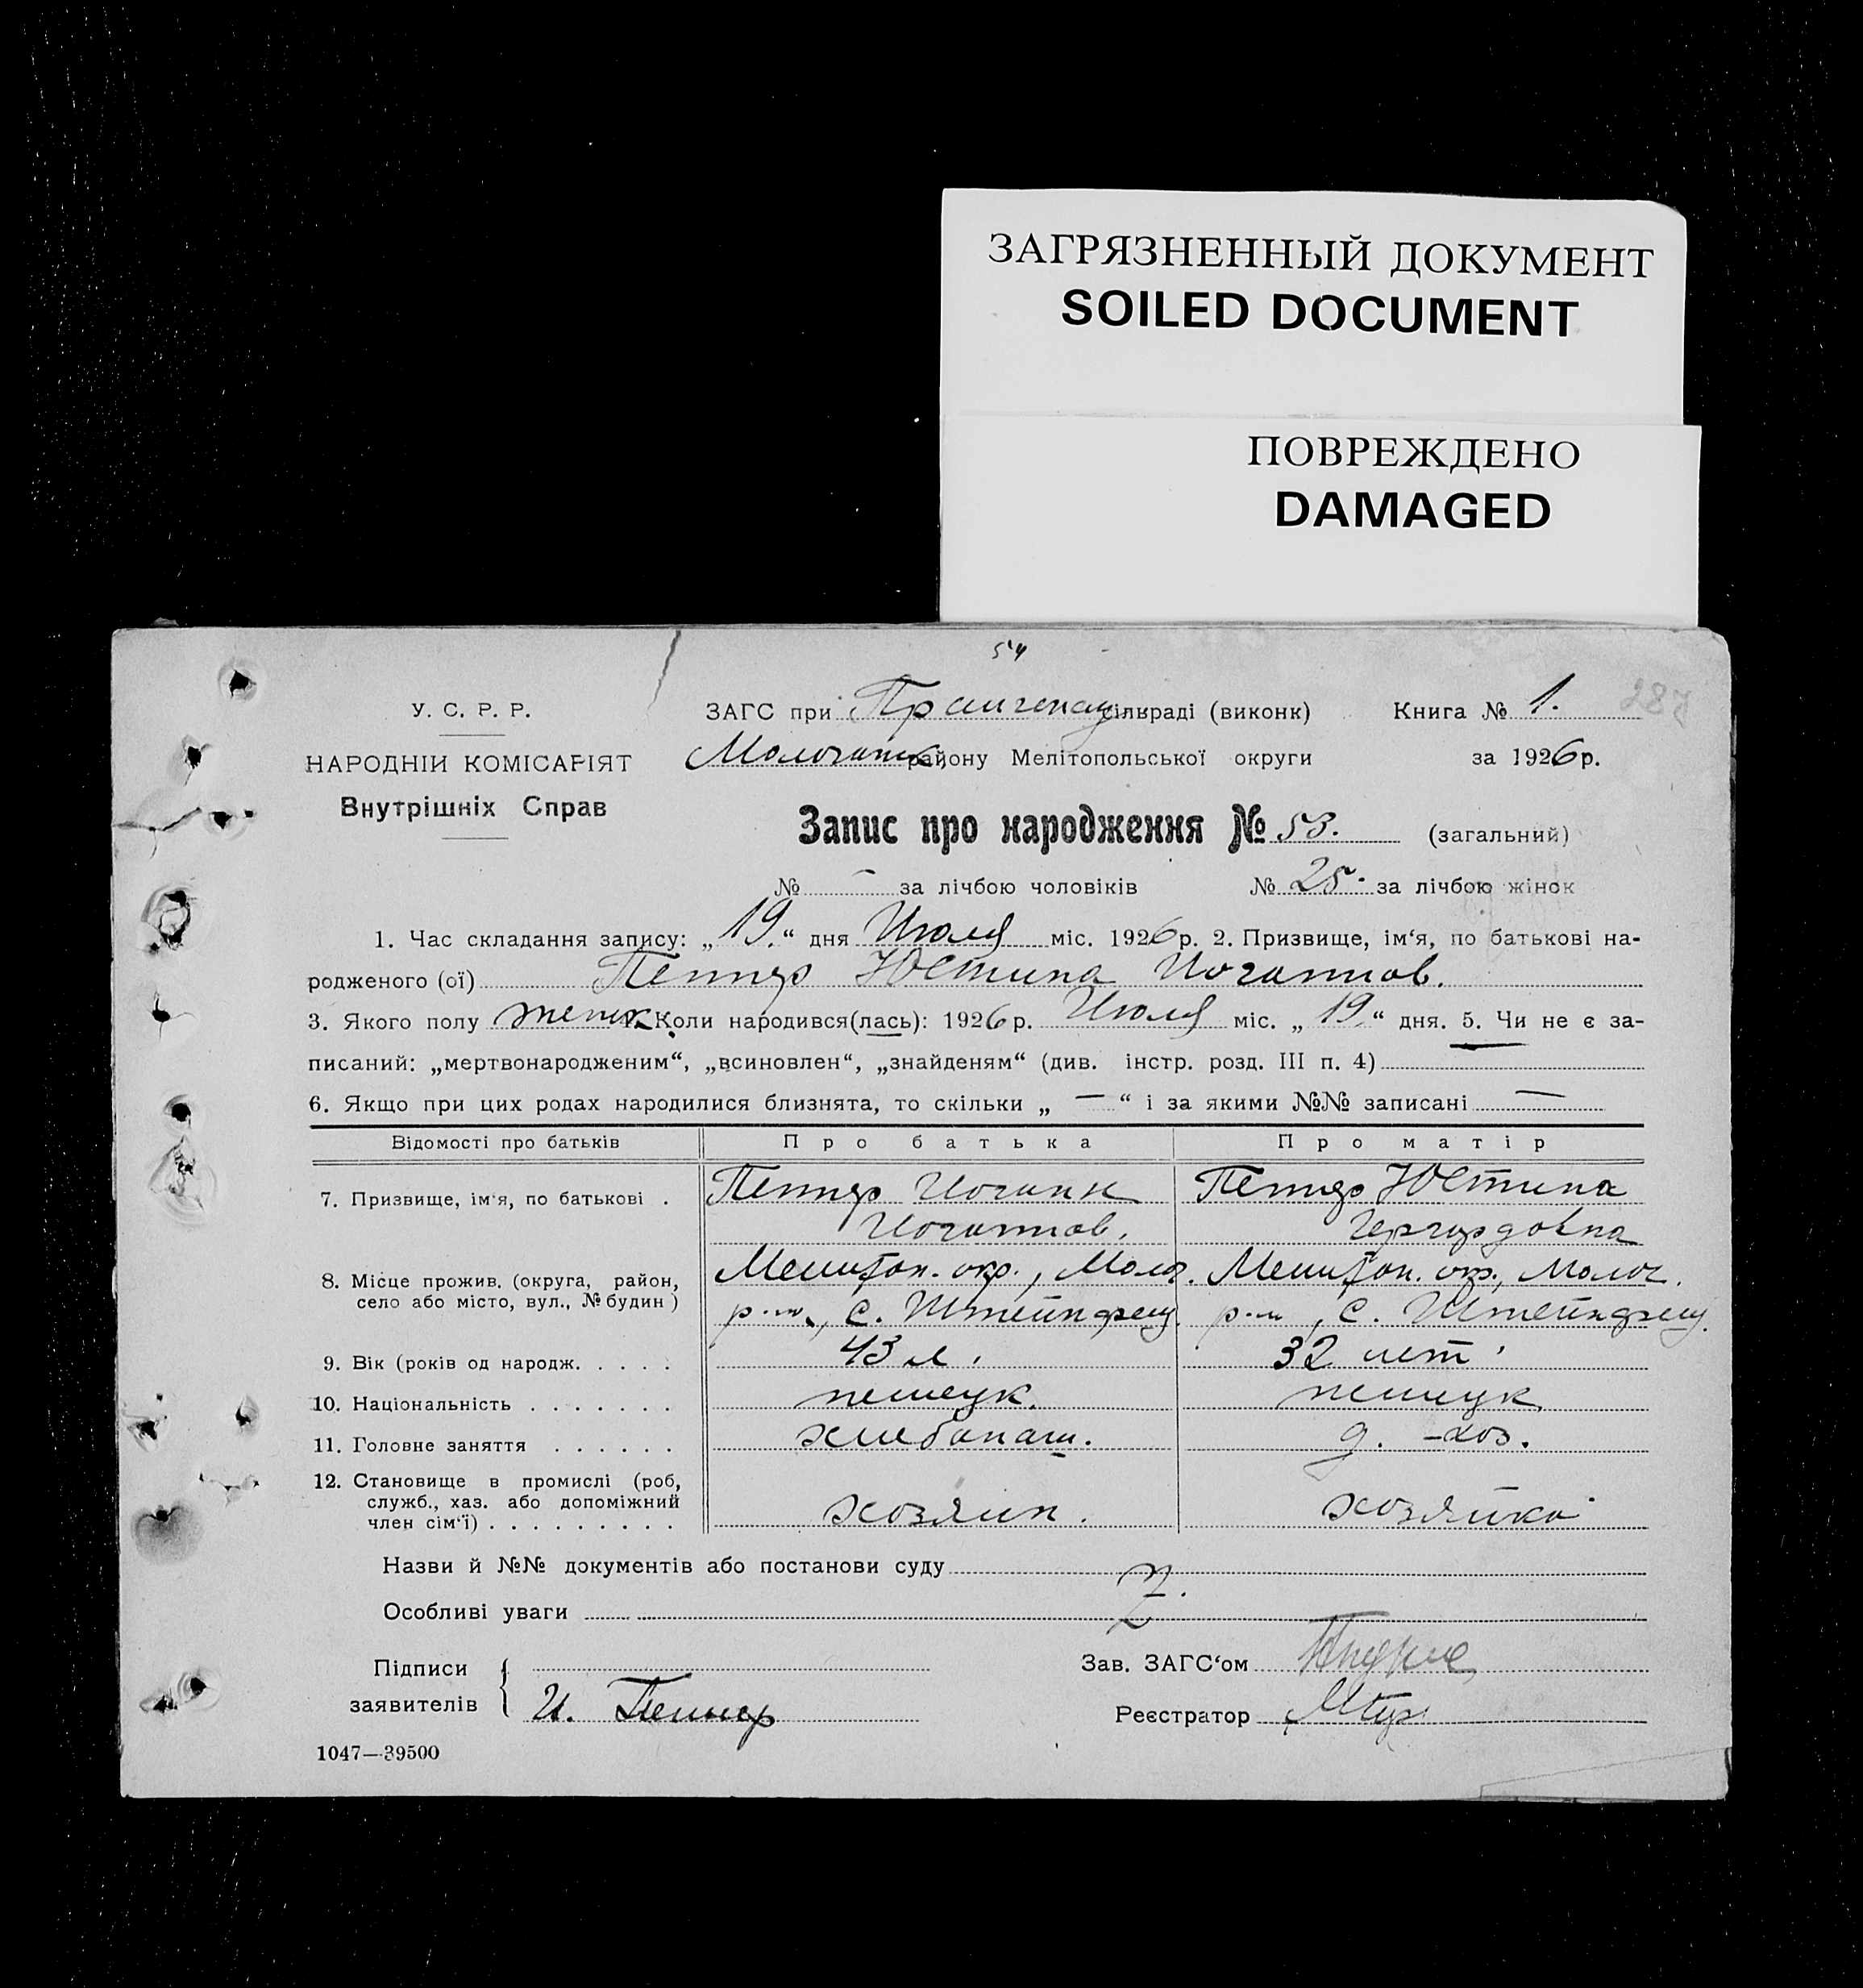 ЗАГРЯЗНЕННЫЙ ДОКУМЕНТ
SOILED DOCUMENT
ПОВРЕЖДЕНО
DAMAGED
54
У. С. Р. Р.
НАРОДНІЙ КОМІСАРІЯТ
Внутрішніх Справ
ЗАГС при Прангенау сільраді (виконк) Книга № 1.
Молочанск. району Мелітопольської округи за 1926 р.
Запис про народження № 53. (загальний)
№ – за лічбою чоловіків № 25. за лічбою жінок
1. Час складання запису: „19.“ дня Июля міс. 1926 р. 2. Призвище, ім‘я, по батькові на-
родженого (ої) Пеннер Юстина Иоганнов.
3. Якого полу женск. 4. Коли народився(лась): 1926 р. Июля міс. „19.“ дня. 5. Чи не є за-
писаний: „мертвонародженим“, „всиновлен“, „знайденям“ (див. інстр. розд. III п. 4)
6. Якщо при цих родах народилися близнята, то скільки „ — “ і за якими №№ записані —
Відомості про батьків Про батька Про матір
7. Призвище, ім‘я, по батькові . Пеннер Иоганн Пеннер Юстина
Иоганнов. Гергардовна
8. Місце прожив. (округа, район, Мелитоп. окр., Молоч. Мелитоп. окр., Молоч.
село або місто, вул., № будин) р-н, с. Штейнфельд. р-н, с. Штейнфельд.
9. Вік (років од народж. . . . . 43 л. 32 лет
10. Національність . . . . . . . немецк. немецк.
11. Головне заняття . . . . . . хлебопаш. д. -хоз.
12. Становище в промислі (роб,
служб., хаз. або допоміжний
член сім‘ї) . . . . . . . . . хозяин. хозяйка
Назви й №№ документів або постанови суду
Особливі уваги
Підписи
заявителів И. Пеннер
Зав. ЗАГС‘ом
Реєстратор
1047—39500